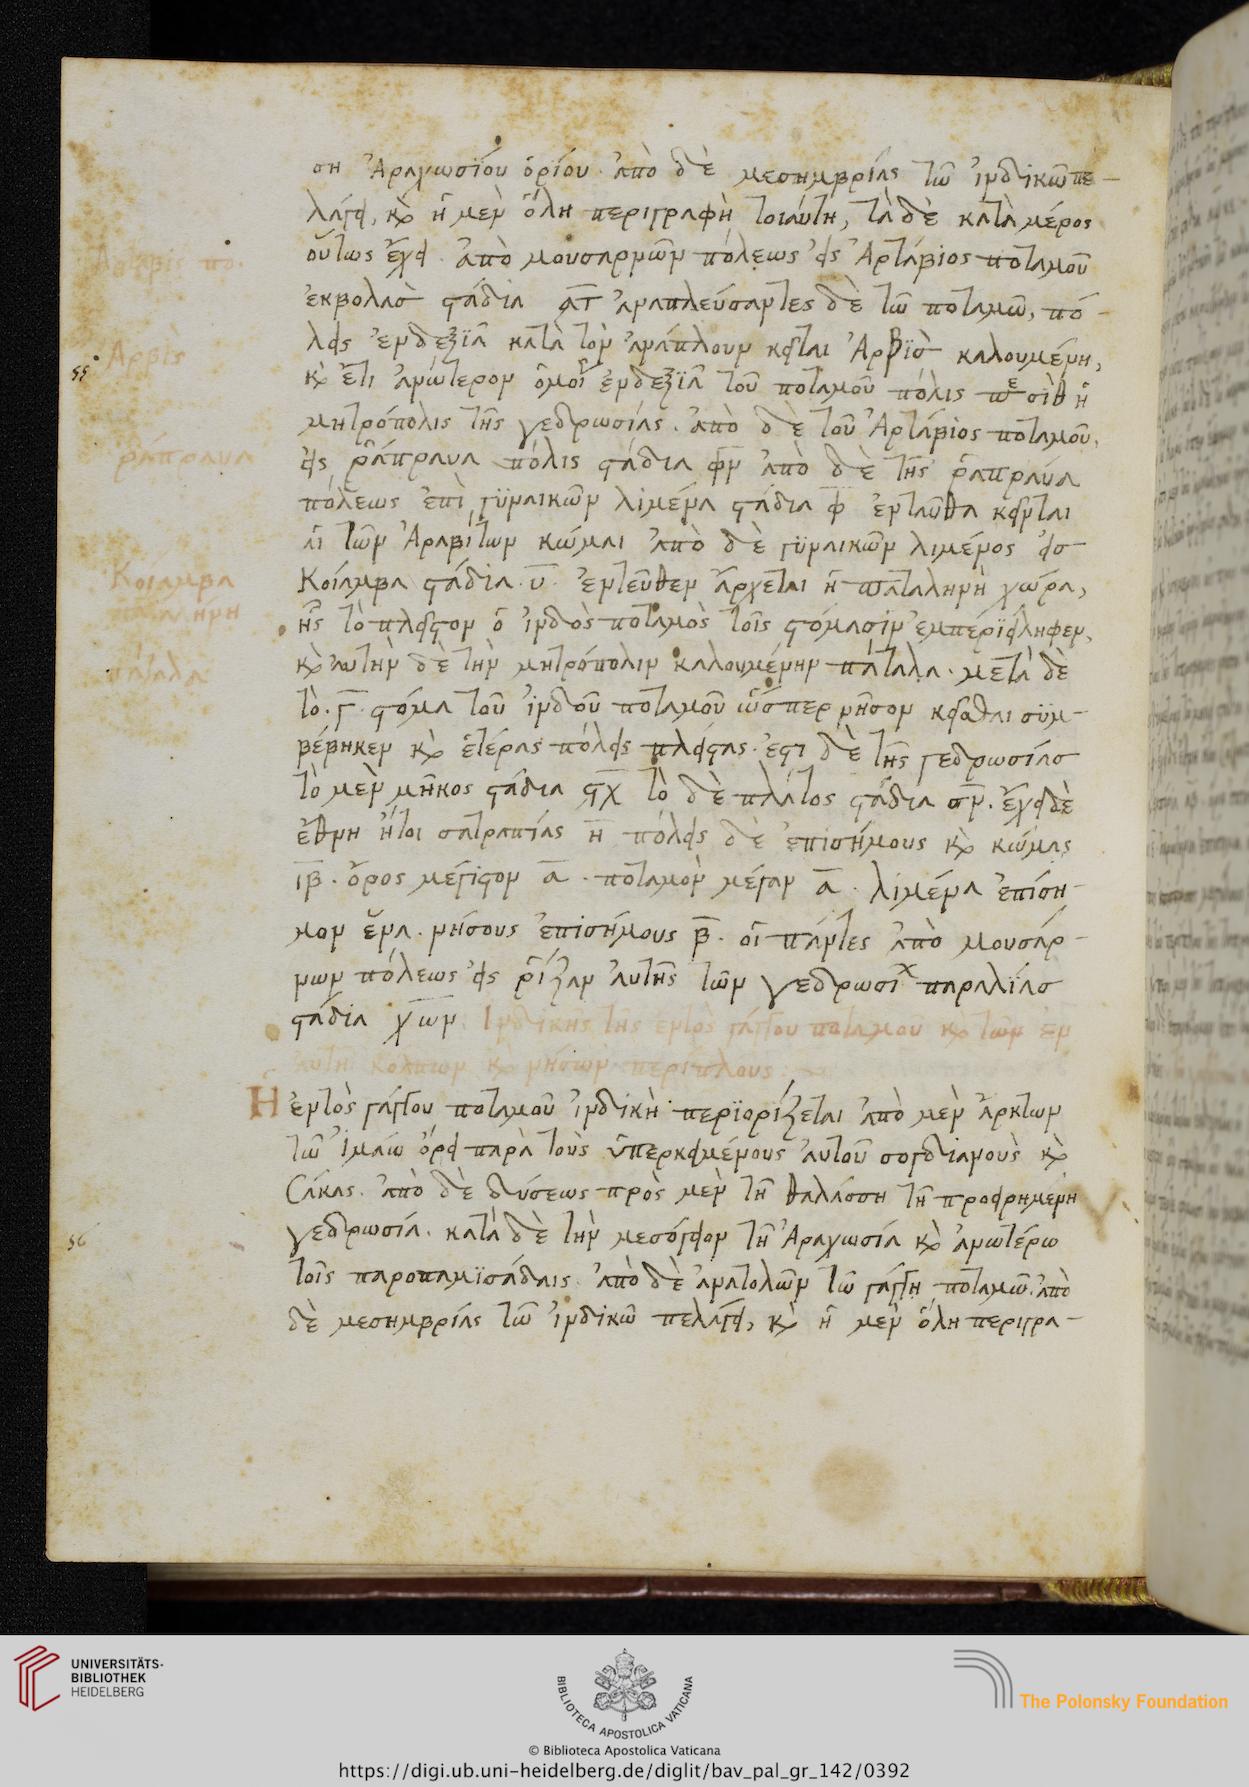 ση Ἀραχωσίου ὁρίου. ἀπὸ δὲ μεσημβρίας τῶ ἰνδικῶ πε-
λάγει, κὶ ἡ μὲν ὅλη περιγραφὴ τοιαύτη, τὰ δὲ κατὰ μέρος
οὕτως ἔχει. ἀπὸ μουσαρνῶν πόλεως εἰς Ἀρτάβιος ποταμοῦ
ἐκβολὰσ στάδια ͵ατ ἀναπλεύσαντες δὲ τῶ ποταμῶ, πό-
λεις ἐνδεξιᾶ κατὰ τὸν ἀνάπλουν κεῖται Ἀρβὶσ καλουμένη,
κὶ ἔτι ἀνώτερον ὁμοῖ ἐνδεξιᾶ τοῦ ποταμοῦ πόλις
μητρόπολις τῆς γεδρωσίας. ἀπὸ δὲ τοῦ Ἀρτάβιος ποταμοῦ,
εἰς ῥάπραυα πόλις στάδια φν ἀπὸ δὲ τῆς ῥαπραύα
πόλεως ἐπὶ γυναικῶν λιμένα στάδια φ ἐνταῦθα κεῖνται
αἱ τῶν Ἀραβίτων κῶμαι ἀπὸ δὲ γυναικῶν λιμένος εἰσ
Κοίαμβα στάδια. υ. ἐντεῦθεν ἄρχεται ἡ παταληνὴ χώρα,
ἧς τὸ πλεῖστον ὁ ἰνδὸς ποταμὸς τοῖς στόμασιν ἐμπεριείληφεν,
κὶ αὐτὴν δὲ τὴν μητρόπολιν καλουμένην πάταλα. μετὰ δὲ
τὸ. γ. στόμα τοῦ ἰνδοῦ ποταμοῦ ὥσπερ νῆσον κεῖσθαι συμ-
βέβηκεν κὶ ἑτέρας πόλεις πλείστας. ἐστι δὲ τῆς γεδρωσίασ
τὸ μὲν μῆκος στάδια ͵ϛχ τὸ δὲ πλάτος στάδια σν. ἔχει δὲ
ἔθνη ἤτοι σατραπίας η πόλεις δὲ ἐπισήμους κὶ κώμας
ιβ. ὄρος μέγιστον α. ποταμὸν μέγαν α. λιμένα ἐπίση-
μον ἕνα. νήσους ἐπισήμους β. οἱ πάντες ἀπὸ μουσάρ-
νων πόλεως εἰς ῥίζαν αὐτῆς τῶν γεδρωσι παραλίασ
στάδια χων. Ἰνδικῆς τῆς ἐντὸς γάγγου ποταμοῦ κὶ τῶν ἐν
αὐτῆ κόλπων κὶ νήσων περίπλους:
Ἡ ἐντὸς γάγγου ποταμοῦ ἰνδικὴ περιορίζεται ἀπὸ μὲν ἄρκτων
τῶ ἰμάω ὄρει παρὰ τοὺς ὑπερκειμένους αὐτοῦ σογδιανοὺς κὶ
Σάκας. ἀπὸ δὲ δύσεως πρὸς μὲν τῆ θαλάσση τῆ προειρημένη
γεδρωσία. κατὰ δὲ τὴν μεσόγειον τῆ Ἀραχωσία κὶ ἀνωτέρω
τοῖς παροπαμισάδαις. ἀπὸ δὲ ἀνατολῶν τῶ γάγγη ποταμῶ. ἀπὸ
δὲ μεσημβρίας τῶ ἰνδικῶ πελάγει, κὶ ἡ μὲν ὅλη περιγρα-
Ἀρβὶς
55
ῥάπραυα
Κοίαμβα
παταληνή
πάταλα
56
UNIVERSITÄTS-
BIBLIOTHEK
HEIDELBERG
BIBLIOTECA APOSTOLICA VATICANA
The Polonsky Foundation
© Biblioteca Apostolica Vaticana
https://digi.ub.uni-heidelberg.de/diglit/bav_pal_gr_142/0392